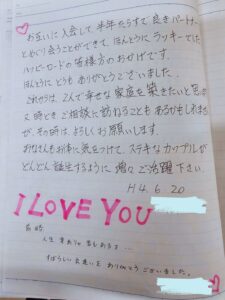 お互いに入会して半年たらずで良きパートナー
とめぐり会うことができて、ほんとうにラッキーでした
ハッピーロードの皆様方のおかげです。
ほんとうに どうも ありがとうございました。
これからは、2人で幸せな家庭を築きたいと思
又時どきご相談に訪ねることもあるかもしれませ
が、その時は よろしくお願いします。
みなさんもお体に気をつけて、ステキなカップルが
どんどん誕生するように 益々ご活躍下さい
H4.6.20
I LOVE YOU
人生 楽あり 苦もあるさ…
すばらしい出逢いを ありがとうございました。